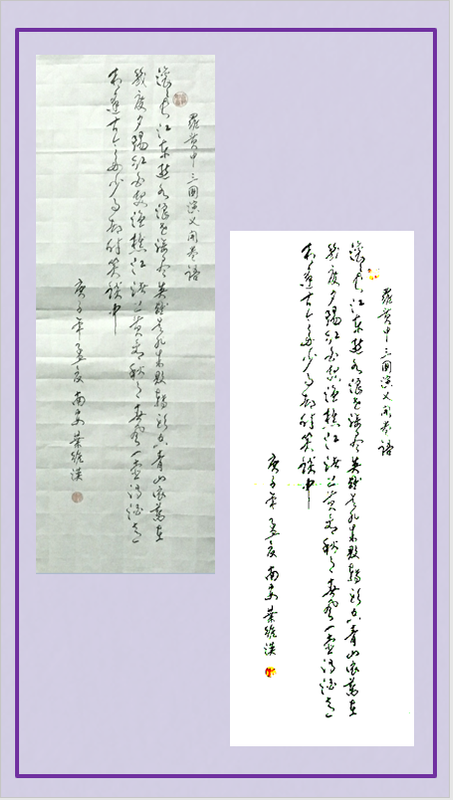 羅貫中三國演义开卷语
滚滚长江东逝水浪花淘尽英雄是非成败转头空青山依舊在
幾度夕陽红白髮渔樵江渚上惯看秋月春風一壶濁酒喜
相逢古今多少事都付笑谈中
庚子年孟夏南安葉維漢
羅貫中三國演义开卷语
滚滚长江东逝水浪花淘尽英雄是非成败转头空青山依舊在
幾度夕陽红白髮渔樵江渚上惯看秋月春風一壶濁酒喜
相逢古今多少事都付笑谈中
庚子年孟夏南安葉維漢